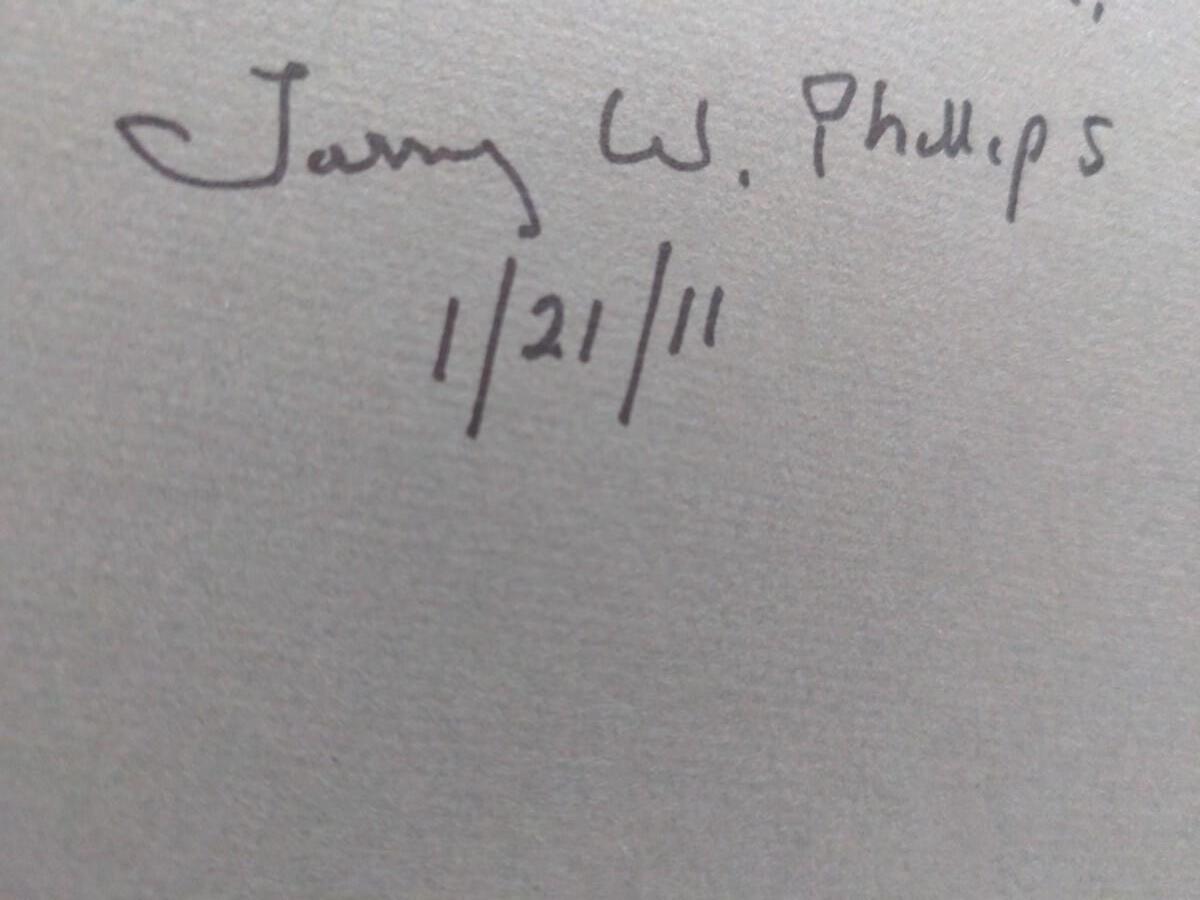 Jarry W. Phillips
1/21/11